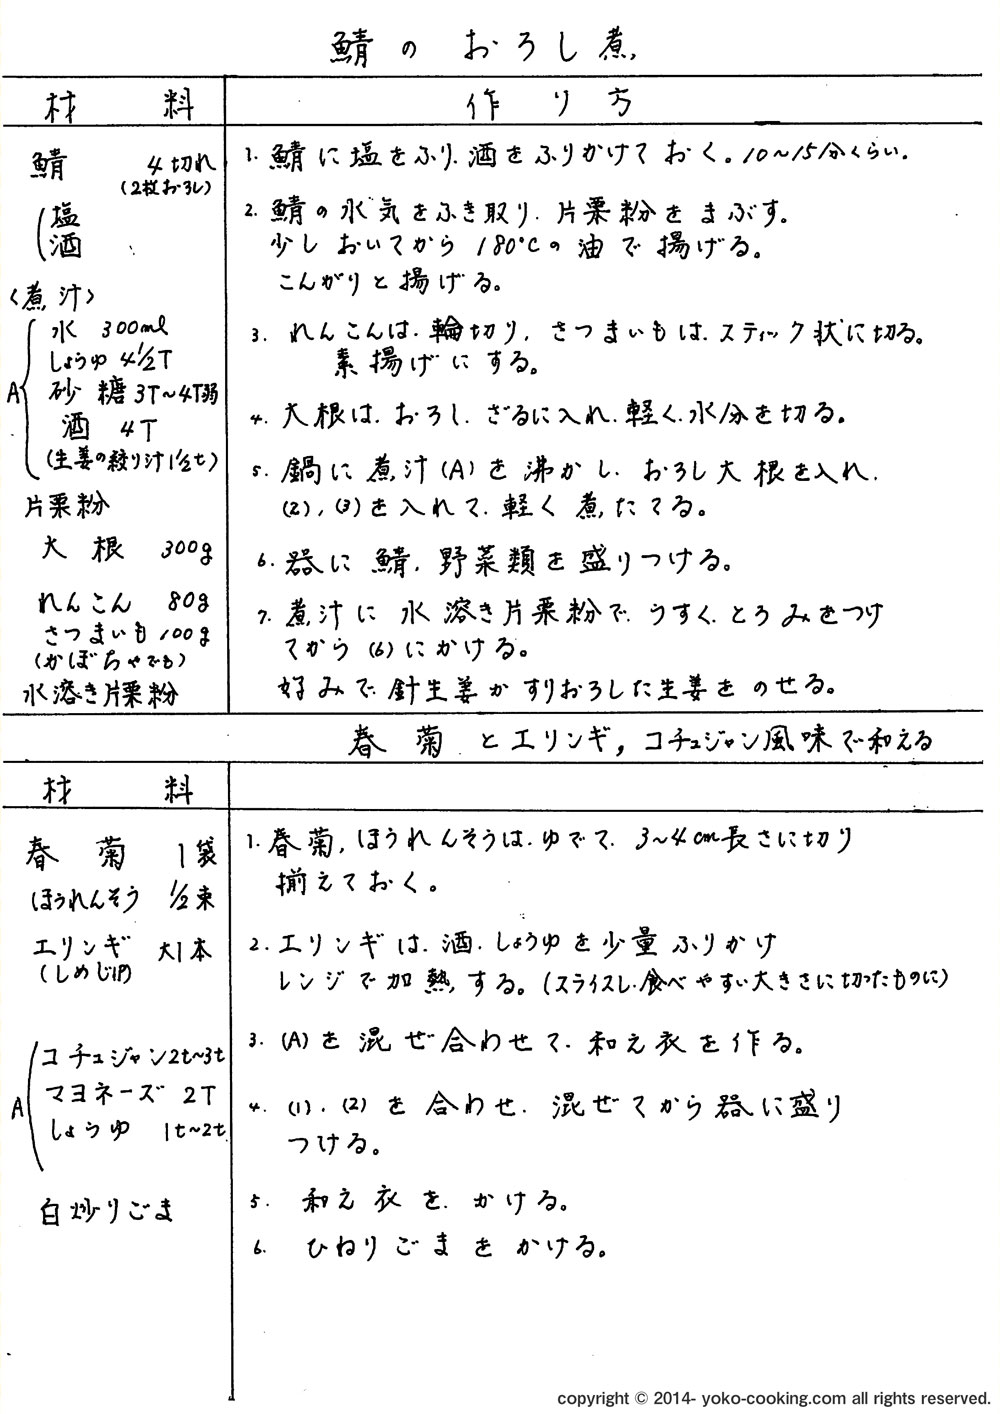 鯖のおろし煮
材料
作り方
鯖 4切れ
(2枚おろし)
塩
酒
〈煮汁〉
A
水 300ml
しょうゆ 4½T
砂糖 3T~4T弱
酒 4T
(生姜の絞り汁1½t)
片栗粉
大根 300g
れんこん 80g
さつまいも 100g
(かぼちゃでも)
水溶き片栗粉
1. 鯖に塩をふり、酒をふりかけておく。10~15分くらい。
2. 鯖の水気をふき取り、片栗粉をまぶす。
少しおいてから180℃の油で揚げる。
こんがりと揚げる。
3. れんこんは、輪切り、さつまいもは、スティック状に切る。
素揚げにする。
4. 大根は、おろし、ざるに入れ、軽く、水分を切る。
5. 鍋に煮汁(A)を沸かし、おろし大根を入れ、
(2),(3)を入れて、軽く煮たてる。
6. 器に鯖、野菜類を盛りつける。
7. 煮汁に水溶き片栗粉で、うすく、とろみをつけ
てから(6)にかける。
好みで、針生姜かすりおろした生姜をのせる。
春菊とエリンギ,コチュジャン風味で和える
材料
春菊 1袋
ほうれんそう ½束
エリンギ 大1本
(しめじ1P)
A
コチュジャン2t~3t
マヨネーズ 2T
しょうゆ 1t~2t
白炒りごま
1. 春菊,ほうれんそうは、ゆでて、3~4cm長さに切り
揃えておく。
2. エリンギは、酒、しょうゆを少量ふりかけ
レンジで加熱する。(スライスし、食べやすい大きさに切ったものに)
3. (A)を混ぜ合わせて、和え衣を作る。
4. (1)、(2)を合わせ、混ぜてから器に盛り
つける。
5. 和え衣を、かける。
6. ひねりごまをかける。
copyright © 2014- yoko-cooking.com all rights reserved.